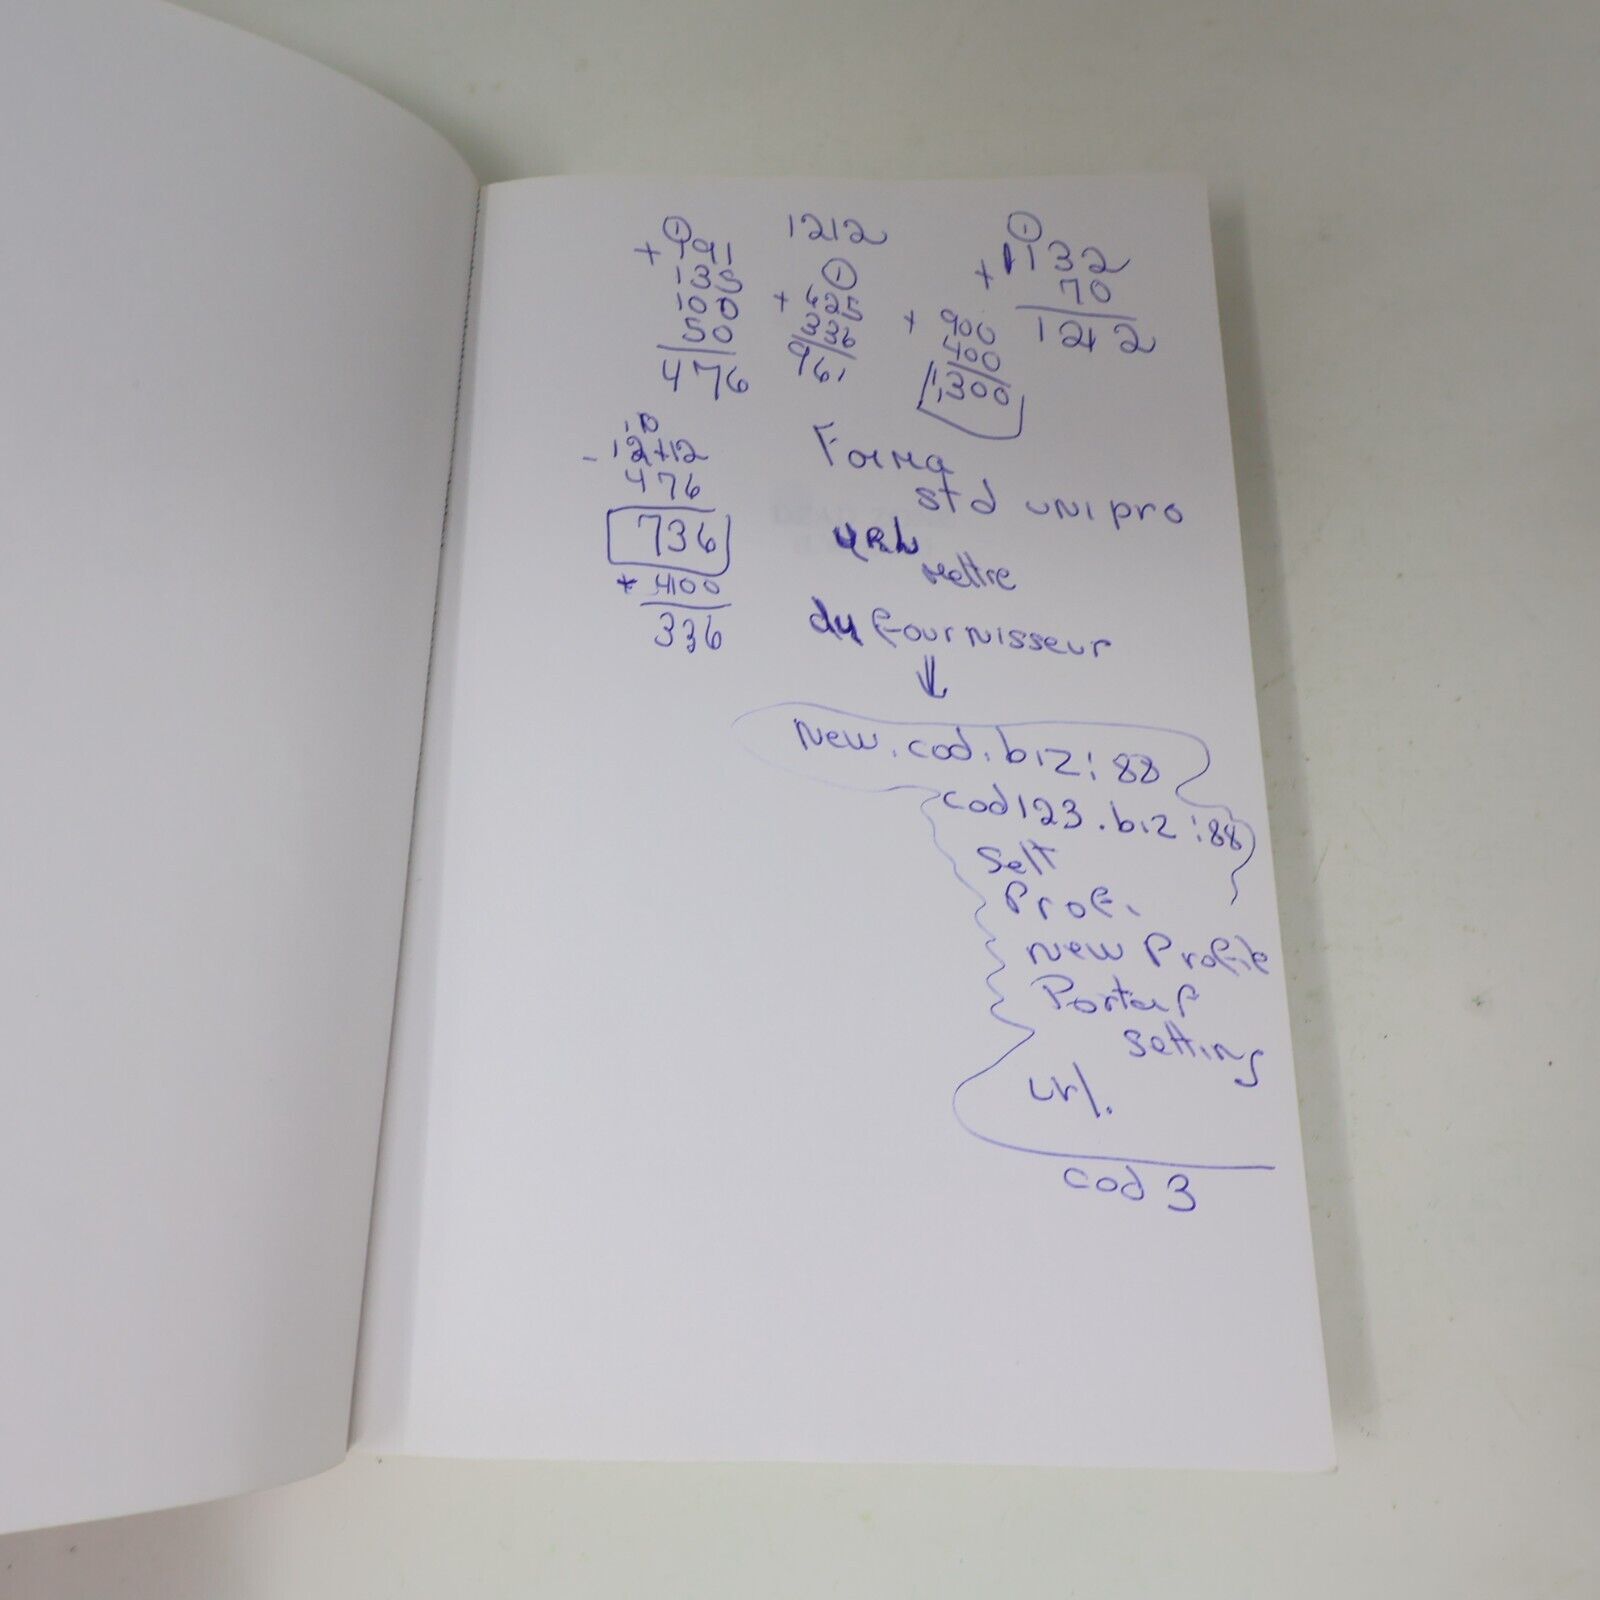 1212
+ 191
135
100
50
476
+ 625
336
961
+ 900
400
1300
+ 1132
70
1212
- 1212
476
736
+ 400
336
std unipro
url
mettre
du fournisseur
new.cod.biz:88
cod123.biz:88
Sett
Prof.
new Profile
Portal
setting
url.
cod 3